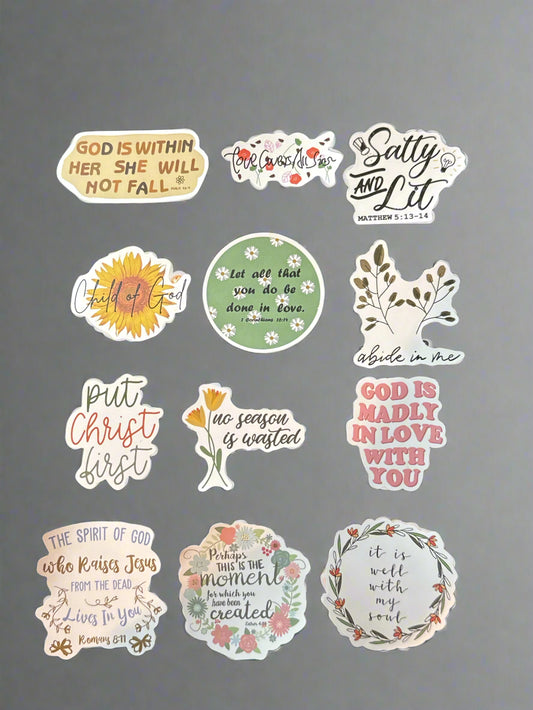 GOD IS WITHIN
HER SHE WILL
NOT FALL
Love Covers All Sins
Salty
AND
Lit
MATTHEW 5:13-14
Child of God
Let all that
you do be
done in love.
1 Corinthians 16:14
abide in me
put
Christ
first
no season
is wasted
GOD IS
MADLY
IN LOVE
WITH
YOU
THE SPIRIT OF GOD
who Raises Jesus
FROM THE DEAD
Lives In You
Romans 8:11
Perhaps
THIS IS THE
moment
for which you
have been
created
Esther 4:14
it is
well
with
my
soul